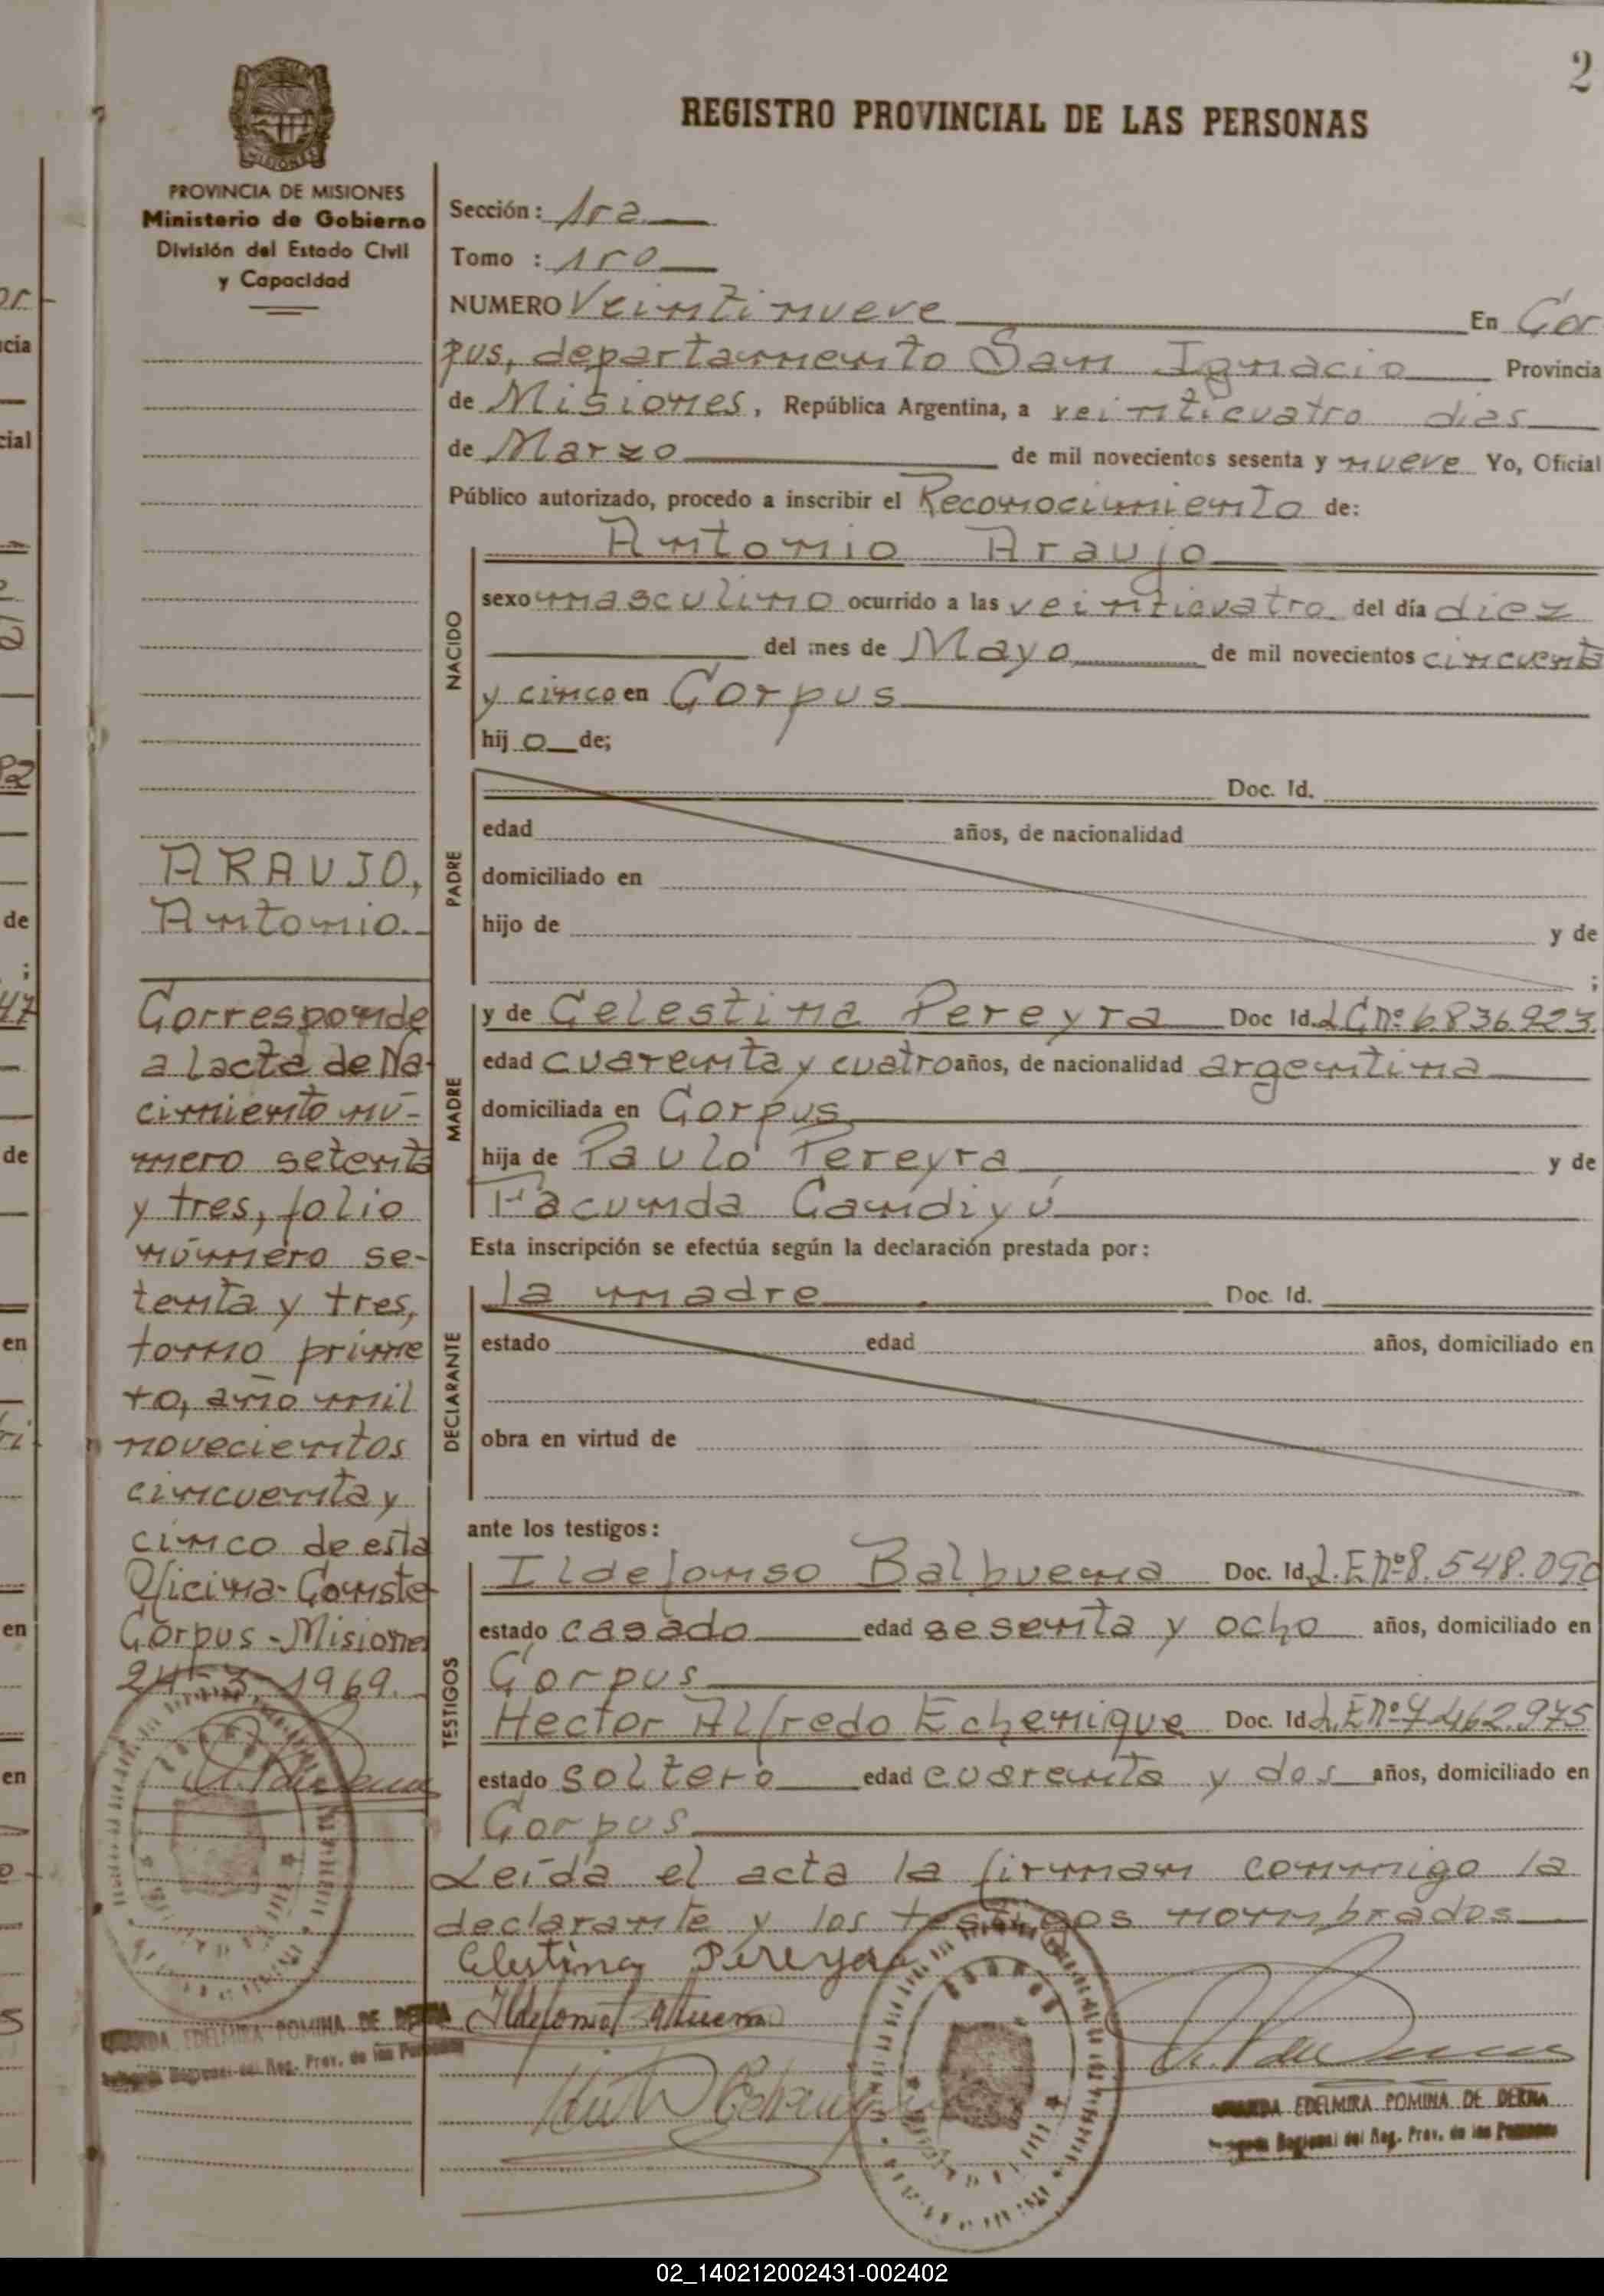 2
REGISTRO PROVINCIAL DE LAS PERSONAS
PROVINCIA DE MISIONES
Ministerio de Gobierno
División del Estado Civil
y Capacidad
ARAUJO,
Antonio.
Corresponde
a lacta de Na-
cimiento nú-
mero setenta
y tres, folio
número se-
tenta y tres,
tomo prime
ro, año mil
novecientos
cincuenta y
cinco de esta
Oficina- Conste
Corpus - Misiones
24-3-1969.
Sección: 1ra
Tomo : 1ro
NUMERO Veintinueve En Cor
pus, departamento San Ignacio Provincia
de Misiones, República Argentina, a veinticuatro dias
de Marzo de mil novecientos sesenta y nueve Yo, Oficial
Público autorizado, procedo a inscribir el Reconocimiento de:
Antonio Araujo
NACIDO
sexo masculino ocurrido a las veinticuatro del día diez
del mes de Mayo de mil novecientos cincuenta
y cinco en Corpus
hij o de;
PADRE
Doc. Id.
edad años, de nacionalidad
domiciliado en
hijo de y de
;
MADRE
y de Celestina Pereyra Doc Id. L C Nº 6836.923
edad cuarenta y cuatro años, de nacionalidad argentina
domiciliada en Corpus
hija de Paulo Pereyra y de
Facunda Candiyú
Esta inscripción se efectúa según la declaración prestada por:
DECLARANTE
la madre Doc. Id.
estado edad años, domiciliado en
obra en virtud de
ante los testigos:
TESTIGOS
Ildefonso Balbuena Doc. Id. L.E Nº 8.548.090
estado casado edad sesenta y ocho años, domiciliado en
Corpus
Hector Alfredo Echenique Doc. Id L.E Nº 7.462.975
estado soltero edad cuarenta y dos años, domiciliado en
Corpus
Leída el acta la firman conmigo la
declarante y los testigos nombrados
Celestina Pereyra
EDELMIRA POMINA DE DERNA
Reg. Prov. de las Personas
EDELMIRA POMINA DE DERNA
Regional del Reg. Prov. de las Personas
02_140212002431-002402